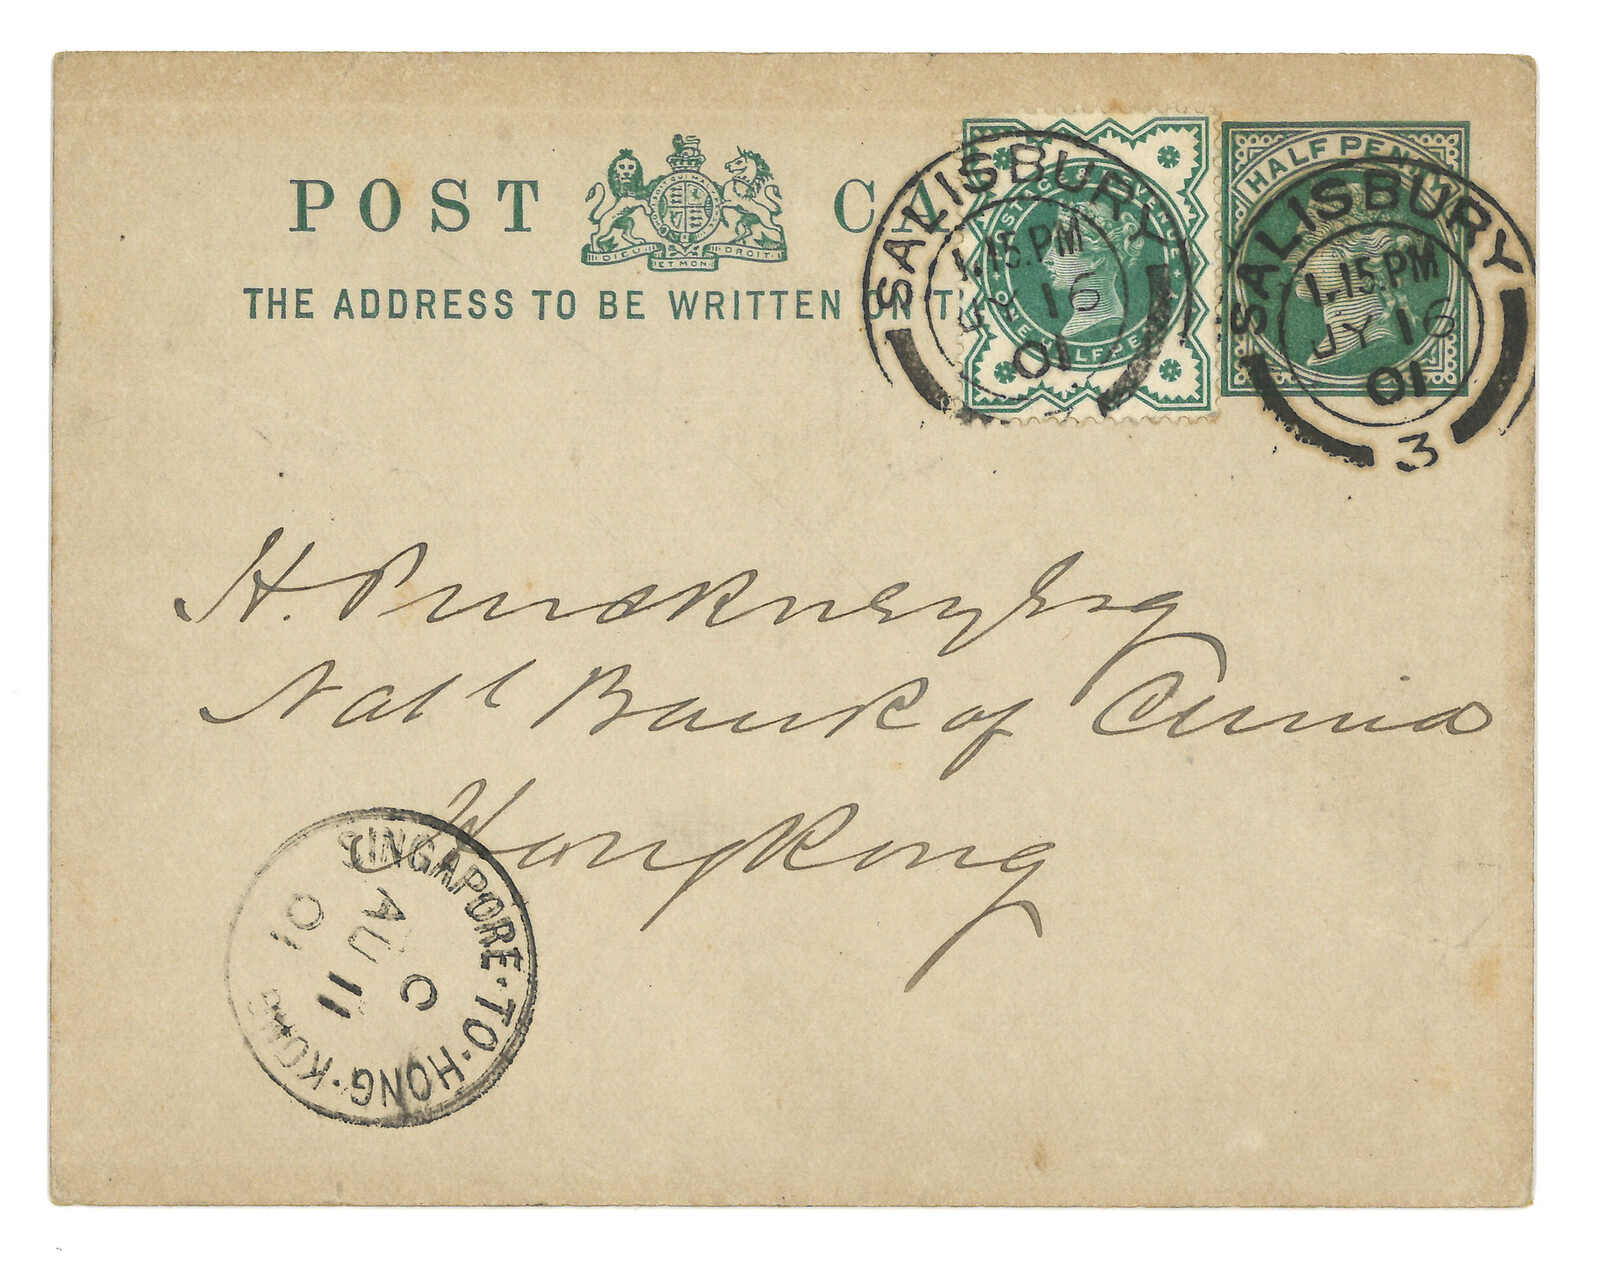 POST CA
DIEU ET MON DROIT
THE ADDRESS TO BE WRITTEN ON TH
POSTAGE & REVENUE
ONE HALFPE
HALF PENNY
SALISBURY
1.15.PM
JY 16
01
SALISBURY
1.15.PM
JY 16
01
3
H. Pinckney Esq
Natl Bank of China
Hongkong
SINGAPORE·TO·HONG·KONG
C
AU 11
01